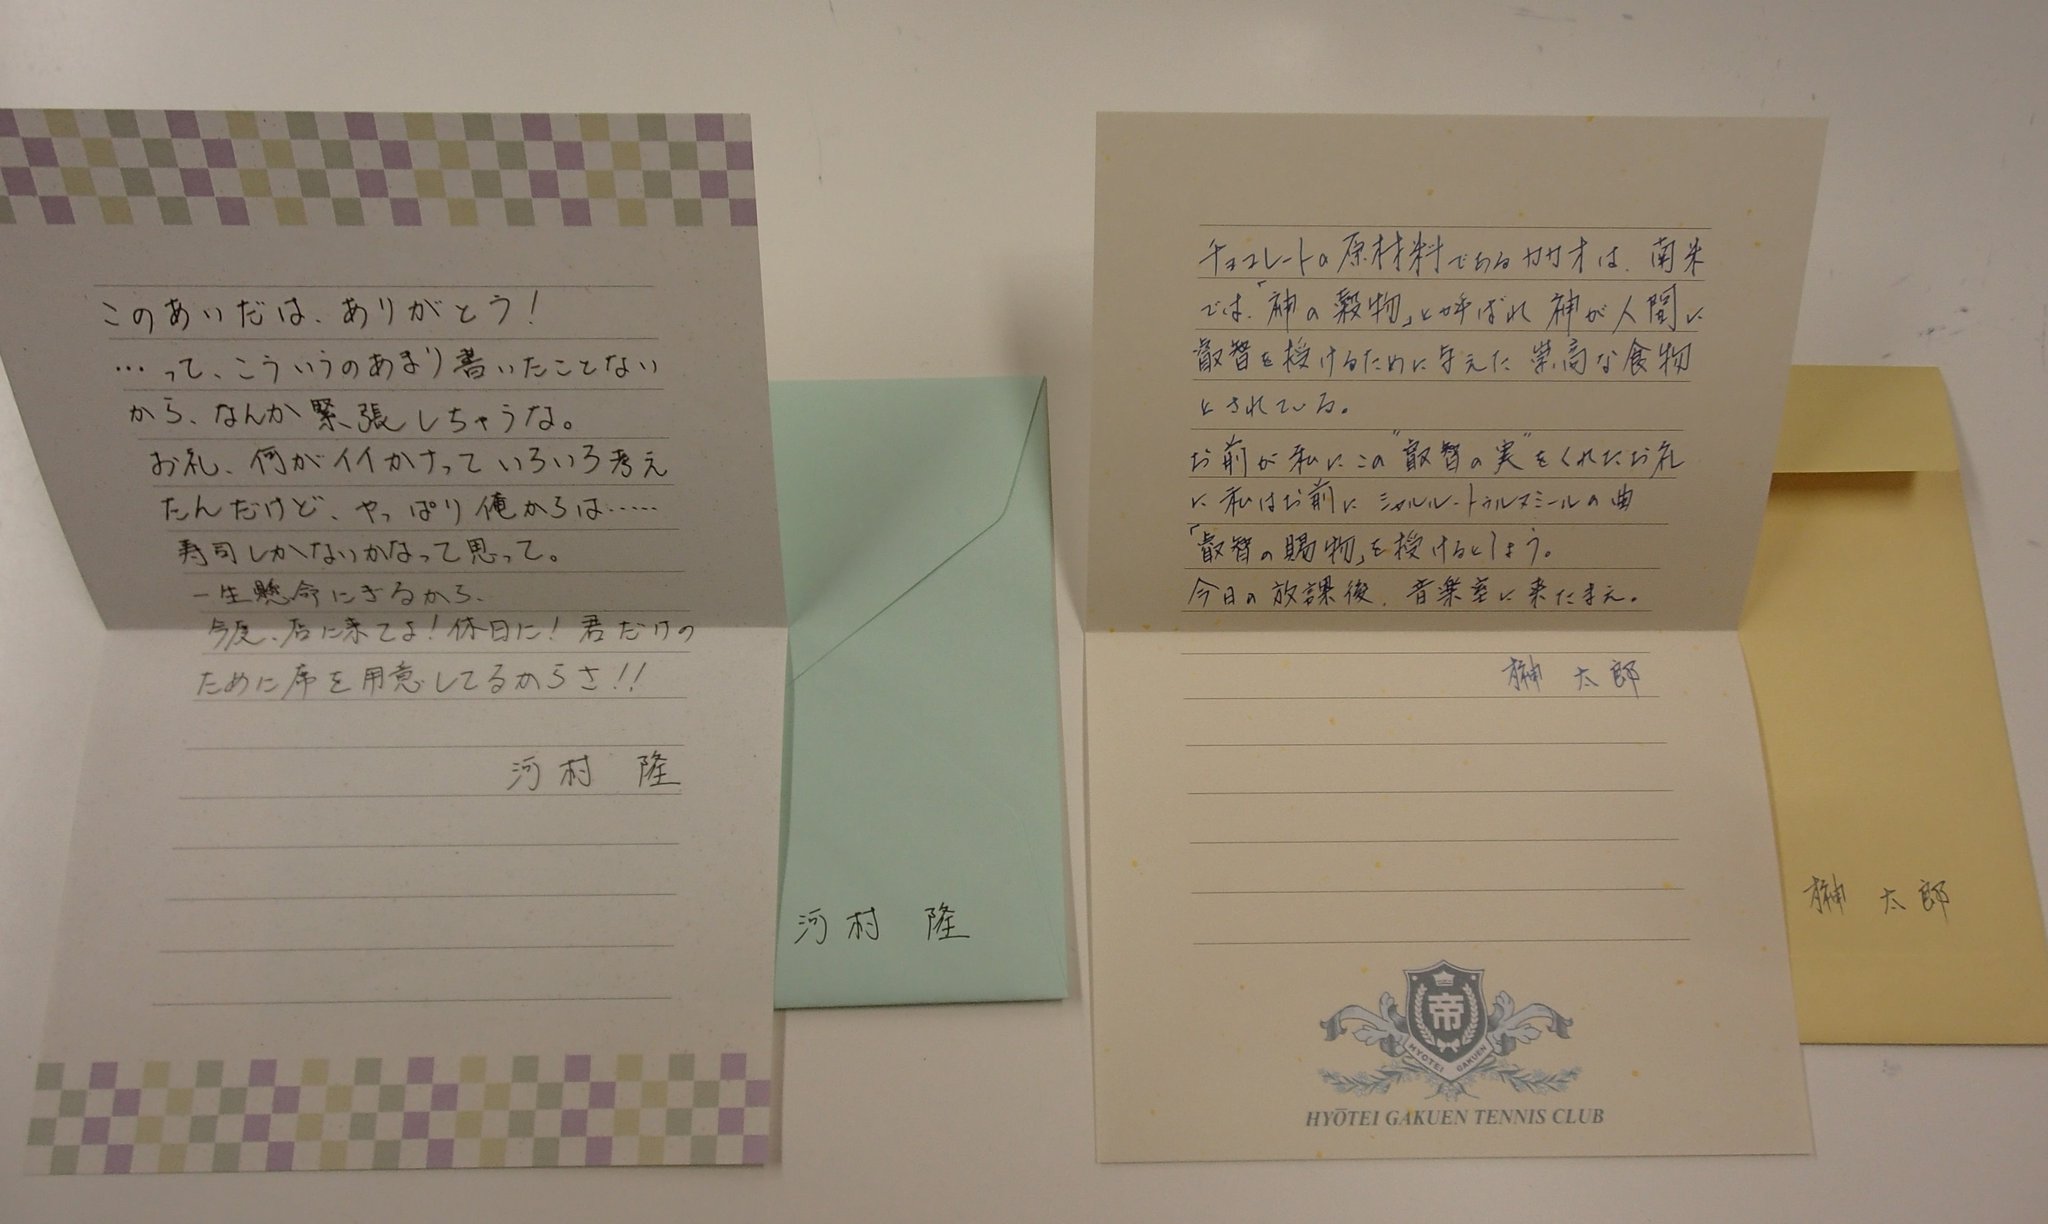 このあいだは、ありがとう!
…って、こういうのあまり書いたことない
から、なんか緊張しちゃうな。
お礼、何がイイかなっていろいろ考え
たんだけど、やっぱり俺からは……
寿司しかないかなって思って。
一生懸命にぎるから、
今度、店に来てよ!休日に!君だけの
ために席を用意してるからさ!!
河村 隆
河村 隆
チョコレートの原材料であるカカオは、南米
では、「神の穀物」と呼ばれ 神が人間に
叡智を授けるために与えた崇高な食物
とされている。
お前が私にこの"叡智の実"をくれたお礼
に私はお前にシャルル・トゥルヌミールの曲
「叡智の賜物」を授けるとしよう。
今日の放課後、音楽室に来たまえ。
榊 太郎
榊 太郎
帝
HYOTEI GAKUEN
HYŌTEI GAKUEN TENNIS CLUB